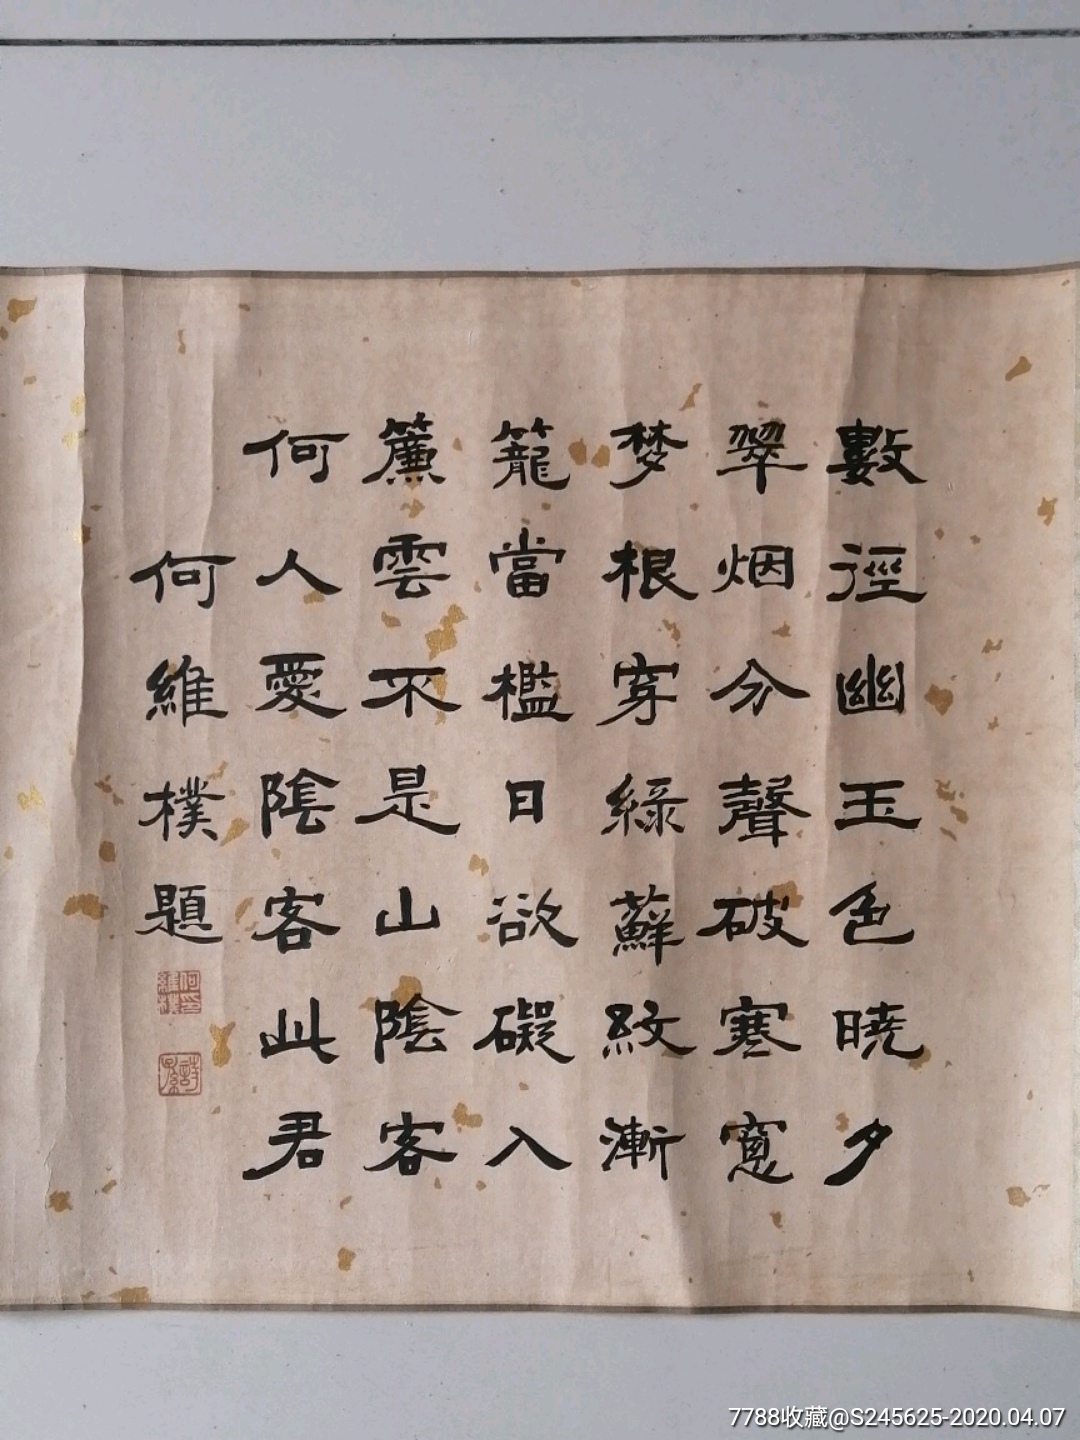 數徑幽玉色曉夕
翠烟分聲破寒窻
梦根穿綠蘚紋漸
籠當檻日欲礙入
簾雲不是山陰客
何人愛陰客此君
何維樸題
何維樸印
詩孫
7788收藏@S245625-2020.04.07